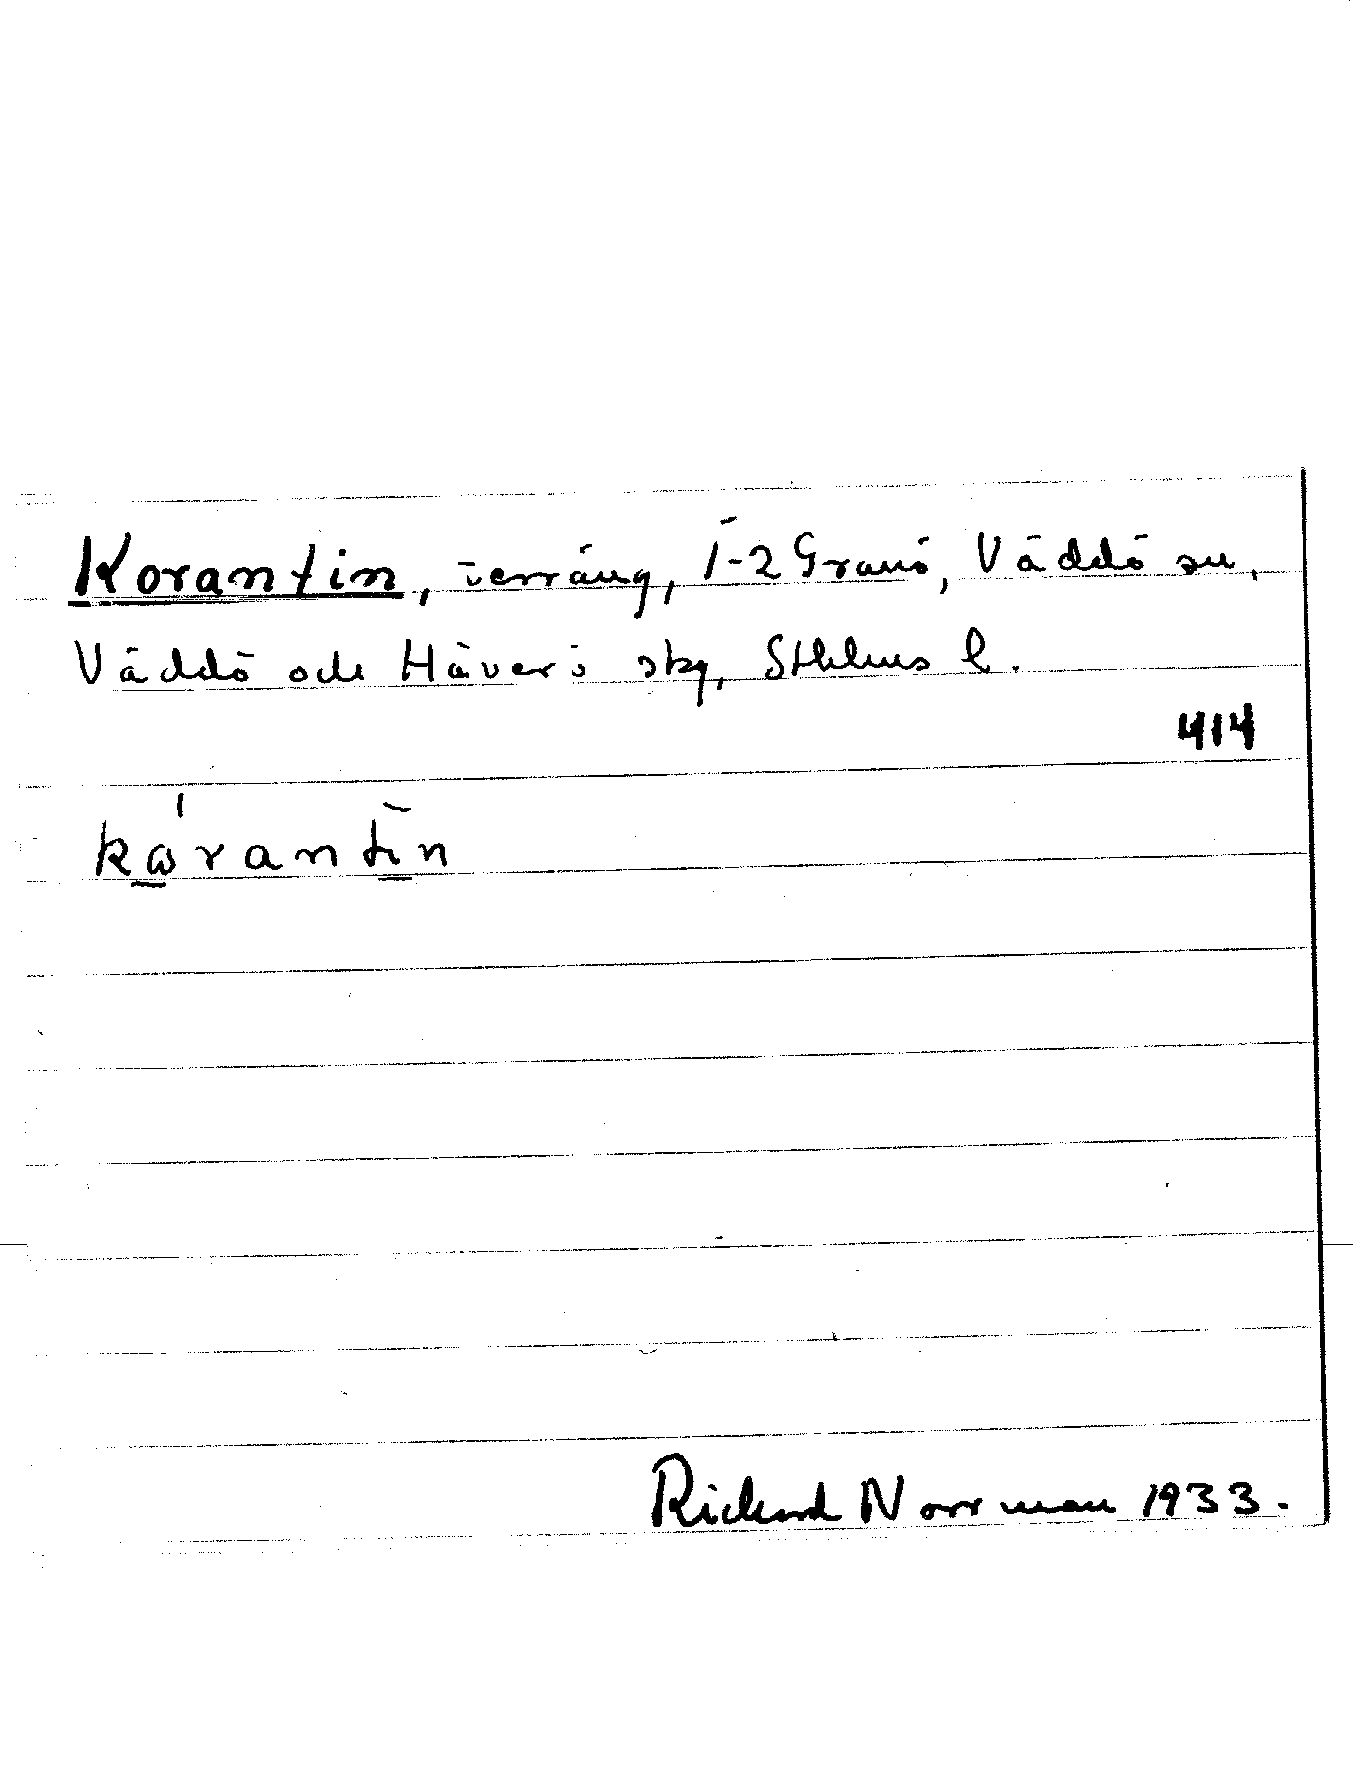 Korantin, terräng, 1-2 Granö, Väddö sn,
Väddö och Häverö skg, Sthlms l.
414
kωrantin
Rickard Norrman 1933.